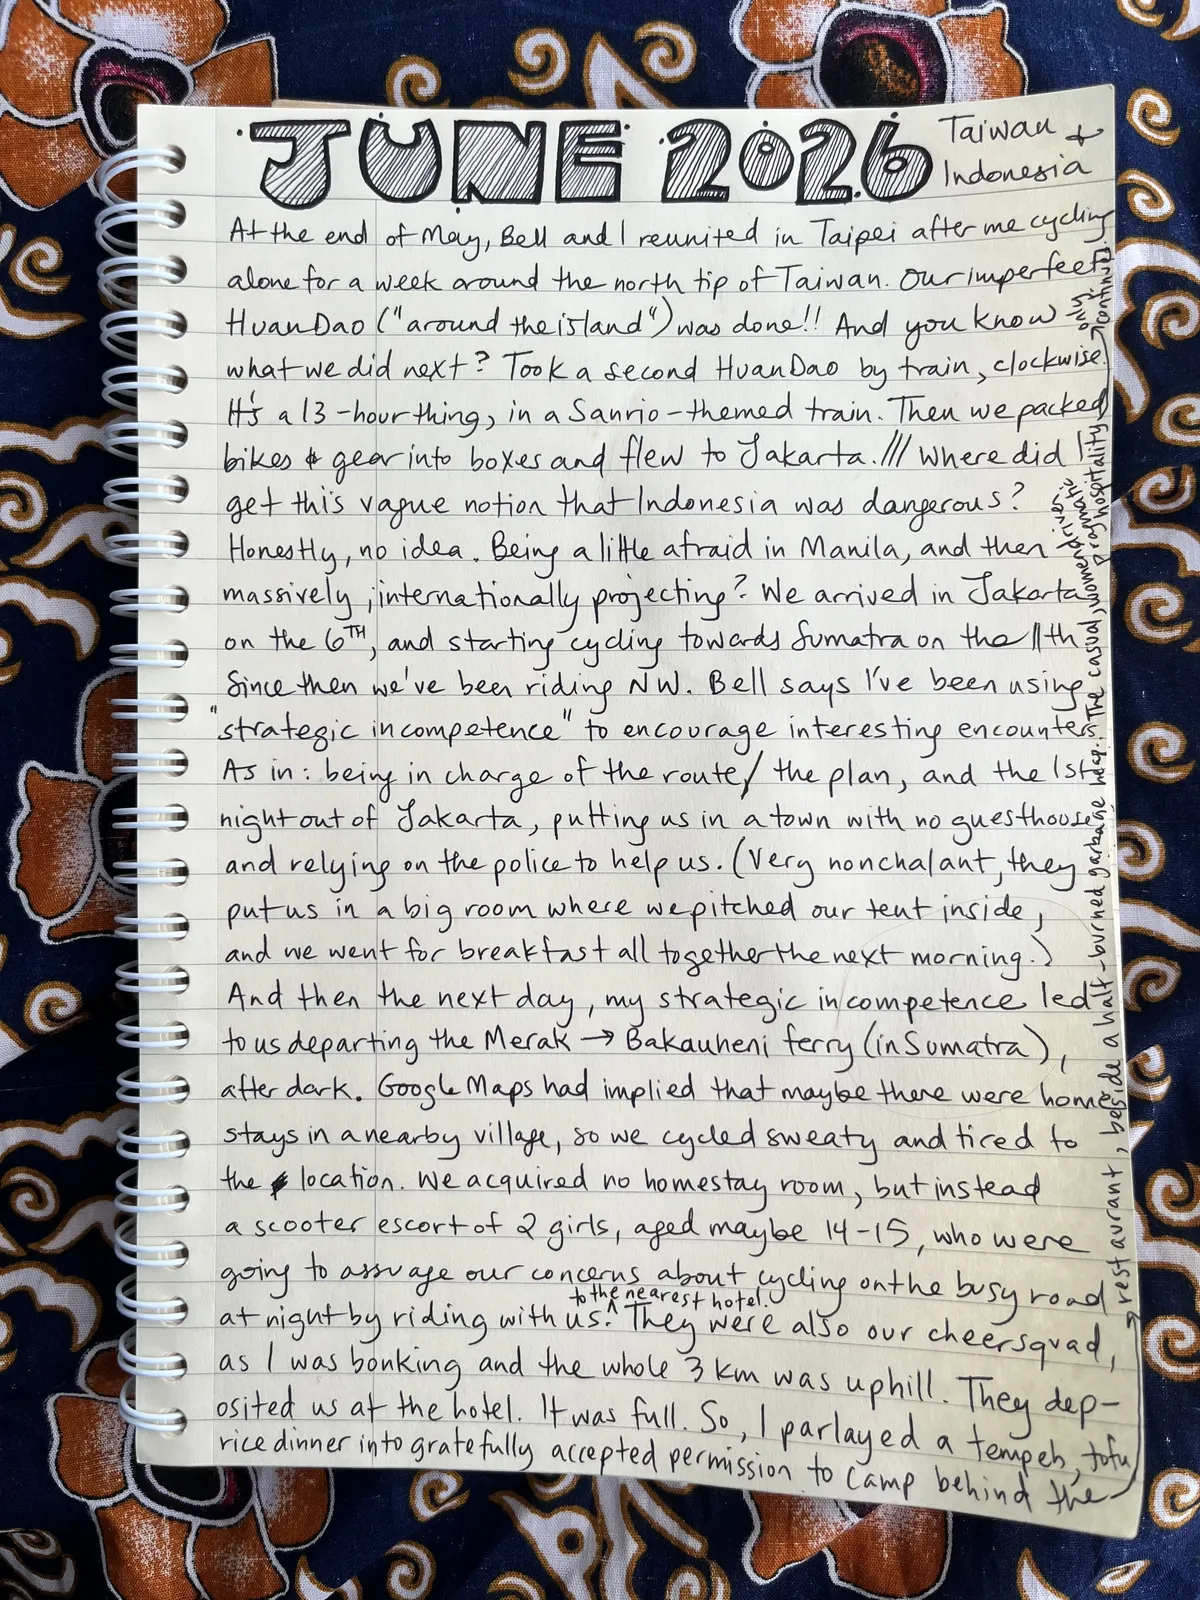 JUNE 2026
Taiwan &
Indonesia
At the end of May, Bell and I reunited in Taipei after me cycling
alone for a week around the north tip of Taiwan. Our imperfect
HuanDao ("around the island") was done!! And you know
what we did next? Took a second HuanDao by train, clockwise.
It's a 13-hour thing, in a Sanrio-themed train. Then we packed
bikes & gear into boxes and flew to Jakarta. /// Where did I
get this vague notion that Indonesia was dangerous?
Honestly, no idea. Being a little afraid in Manila, and then
massively, internationally projecting? We arrived in Jakarta
on the 6TH, and starting cycling towards Sumatra on the 11th
Since then we've been riding NW. Bell says I've been using
"strategic incompetence" to encourage interesting encounters.
As in: being in charge of the route/ the plan, and the 1st
night out of Jakarta, putting us in a town with no guesthouse
and relying on the police to help us. (Very nonchalant, they
put us in a big room where we pitched our tent inside,
and we went for breakfast all together the next morning.)
And then the next day, my strategic incompetence led
to us departing the Merak → Bakauheni ferry (in Sumatra),
after dark. Google Maps had implied that maybe there were home
stays in a nearby village, so we cycled sweaty and tired to
the location. We acquired no homestay room, but instead
a scooter escort of 2 girls, aged maybe 14-15, who were
going to assuage our concerns about cycling on the busy road
at night by riding with us to the nearest hotel. They were also our cheersquad,
as I was bonking and the whole 3 km was uphill. They dep-
osited us at the hotel. It was full. So, I parlayed a tempeh, tofu
rice dinner into gratefully accepted permission to camp behind the
restaurant, beside a half-burned garbage heap. The casual, women driven
pragmatic hospitality
only continued.